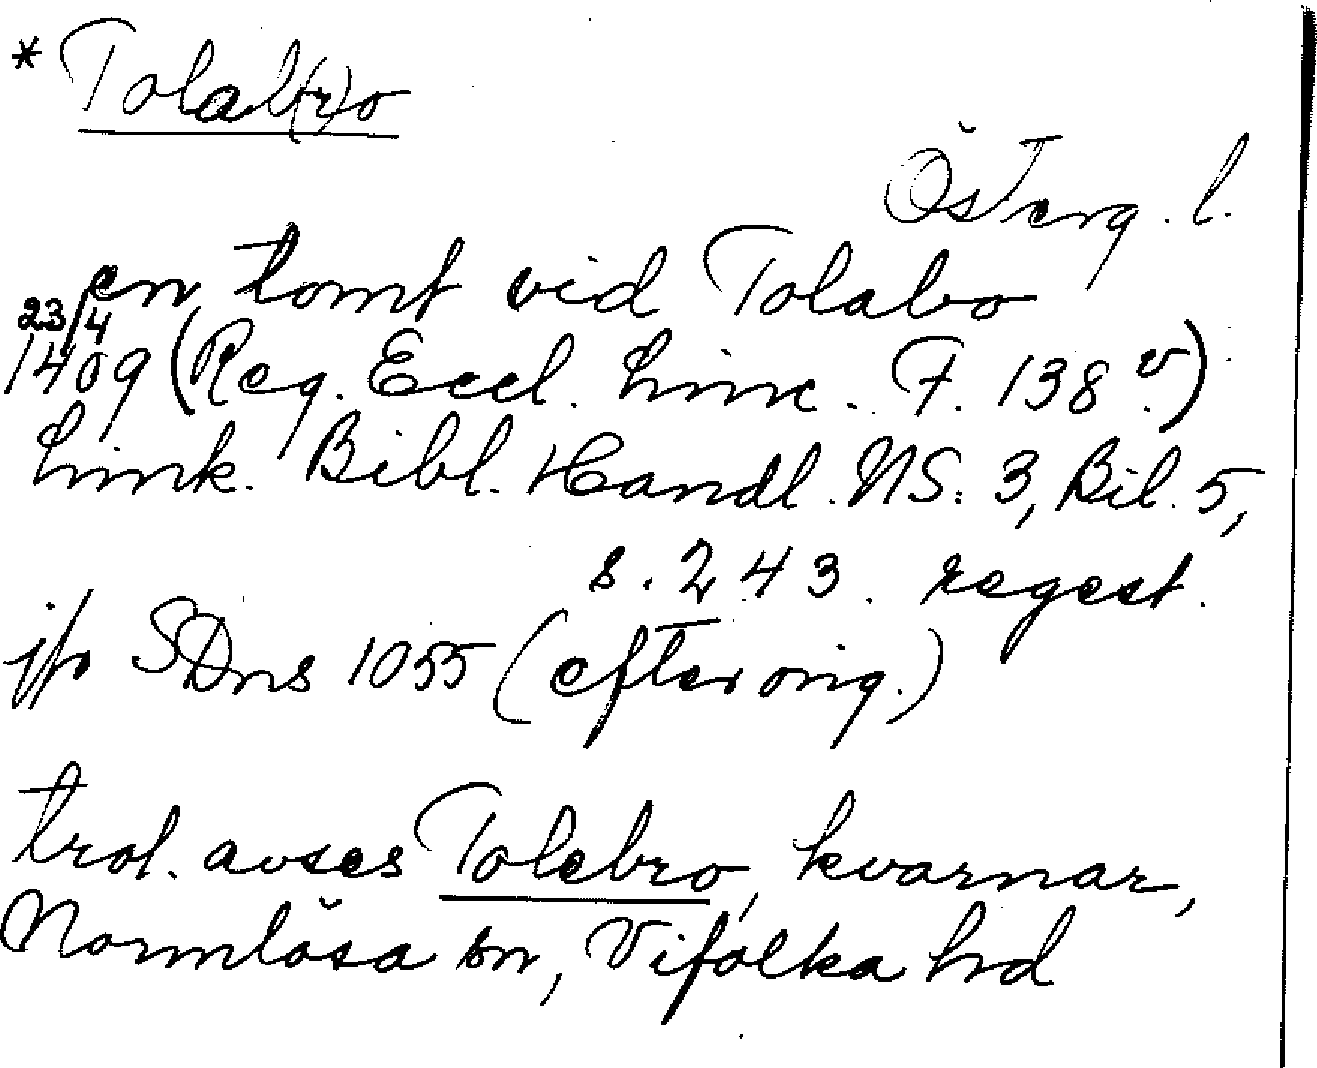 * Tolab(r)o
Österg. l.
en tomt vid Tolabo
23/4
1409 (Reg. Eccl. Linc. F. 138 v.)
Link. Bibl. Handl. NS. 3, Bil. 5,
s. 243. regest.
jfr SDns 1055 (efter orig.)
trol. avses Tolebro, kvarnar,
Normlösa sn, Vifolka hd